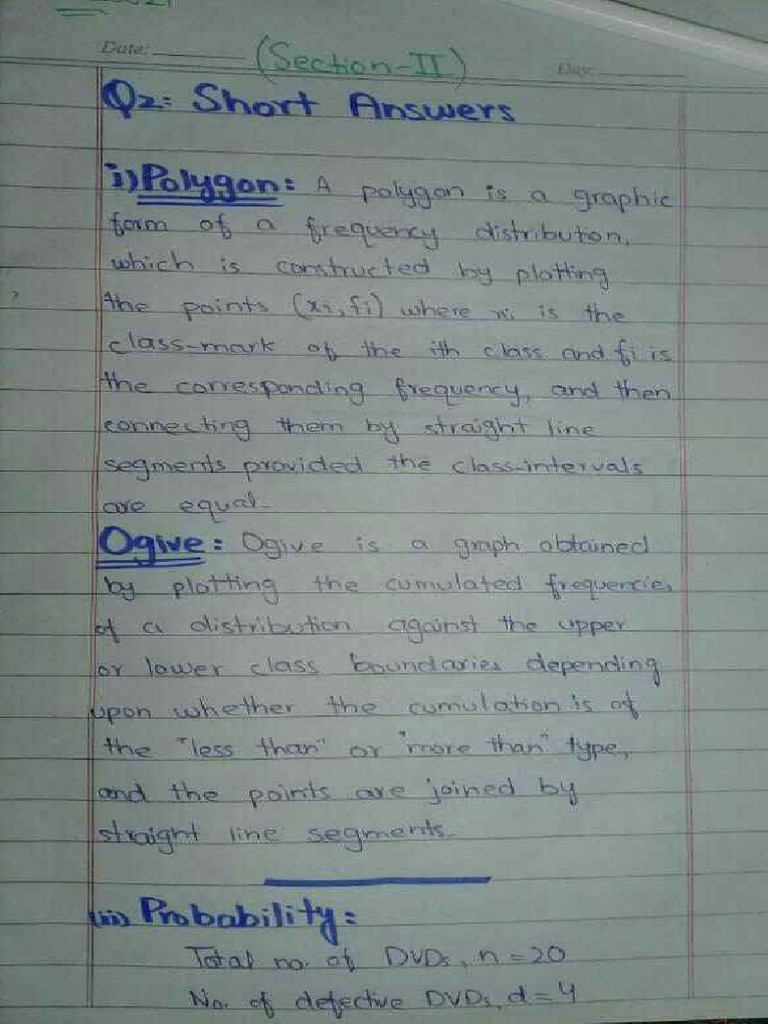 Date:
(Section-II)
Day:
Q2: Short Answers
i) Polygon: A polygon is a graphic
form of a frequency distribution,
which is constructed by plotting
the points (xi, fi) where xi is the
class-mark of the ith class and fi is
the corresponding frequency, and then
connecting them by straight line
segments provided the class-intervals
are equal-
Ogive: Ogive is a graph obtained
by plotting the cumulated frequencies
of a distribution against the upper
or lower class boundaries depending
upon whether the cumulation is of
the "less than" or "more than" type,
and the points are joined by
straight line segments-
(iii) Probability:
Total no. of DVDs, n = 20
No. of defective DVDs, d = 4